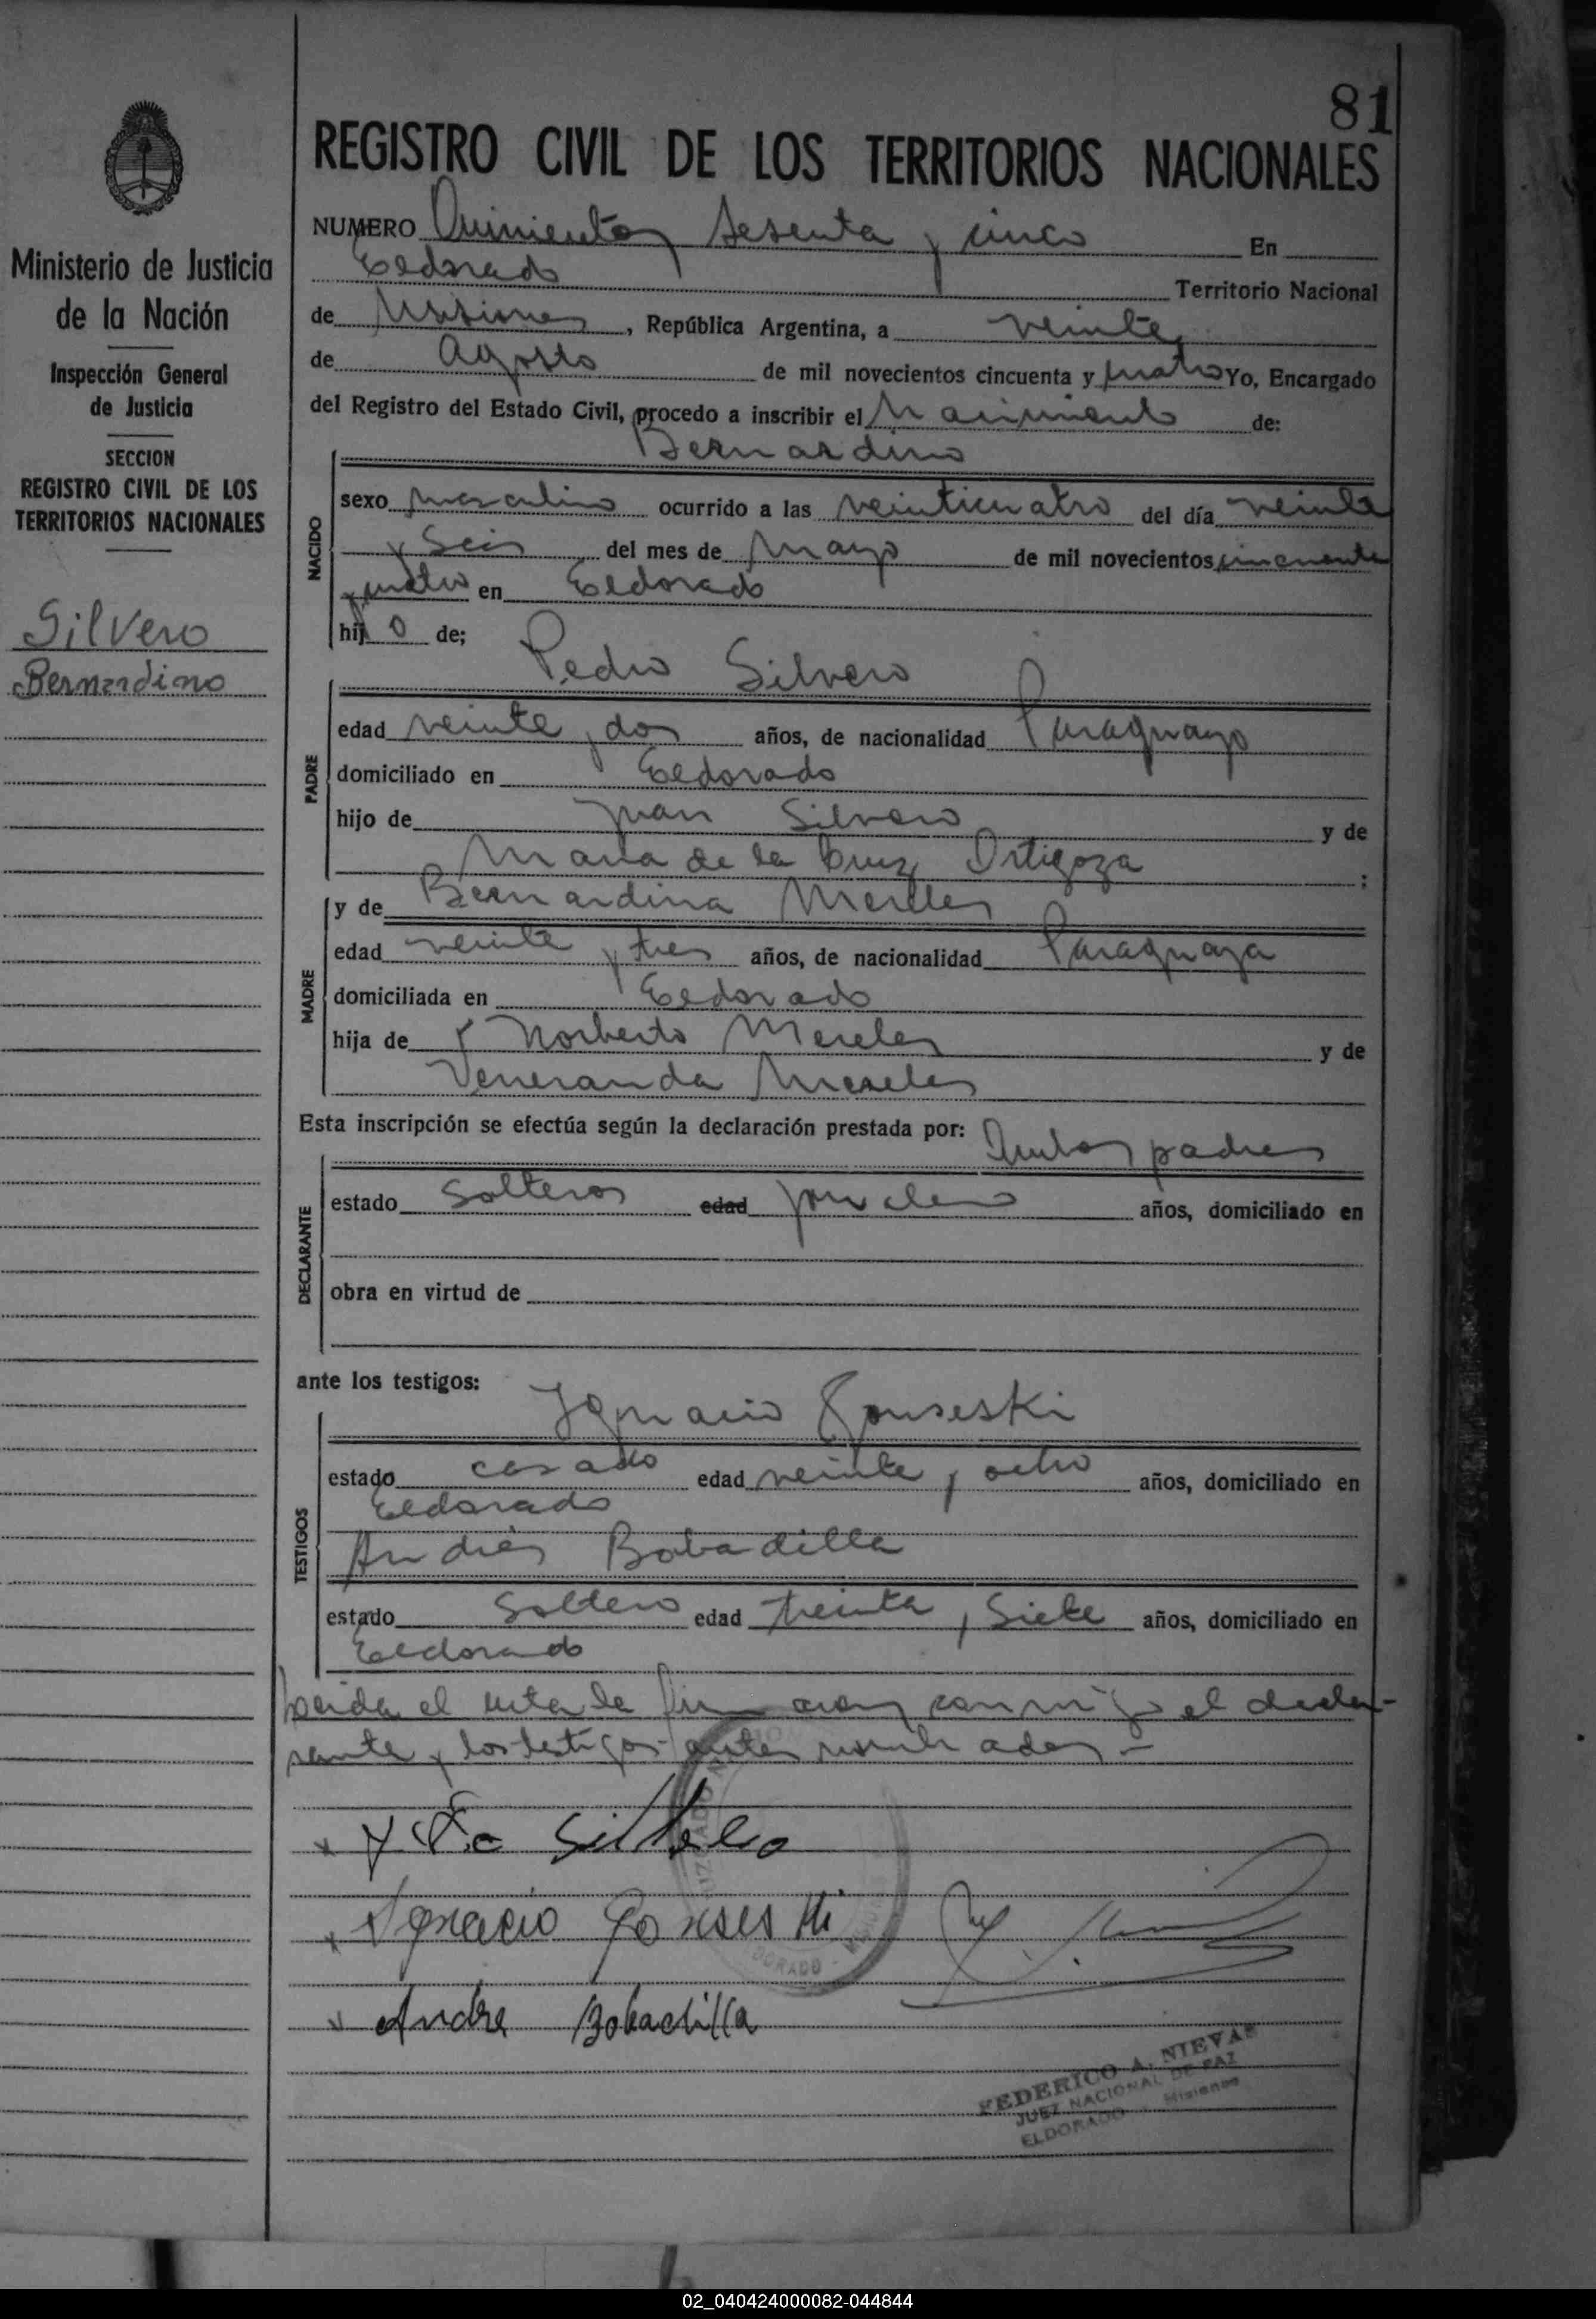 81
REGISTRO CIVIL DE LOS TERRITORIOS NACIONALES
Ministerio de Justicia
de la Nación
Inspección General
de Justicia
SECCION
REGISTRO CIVIL DE LOS
TERRITORIOS NACIONALES
Silvero
Bernardino
NUMERO Quinientos sesenta y cinco En
Eldorado Territorio Nacional
de Misiones, República Argentina, a veinte
de agosto de mil novecientos cincuenta y cuatro Yo, Encargado
del Registro del Estado Civil, procedo a inscribir el Nacimiento de:
Bernardino
NACIDO
sexo masculino ocurrido a las veinticuatro del día veinte
y Seis del mes de mayo de mil novecientos cincuenta
y cuatro en Eldorado
hijo de;
Pedro Silvero
PADRE
edad veinte y dos años, de nacionalidad Paraguayo
domiciliado en Eldorado
hijo de Juan Silvero y de
Maria de la Cruz Ortigoza ;
MADRE
y de Bernardina Mereles
edad veinte y tres años, de nacionalidad Paraguaya
domiciliada en Eldorado
hija de Norberto Mereles y de
Veneranda Mereles
Esta inscripción se efectúa según la declaración prestada por: Ambos padres
DECLARANTE
estado Solteros edad años, domiciliado en
obra en virtud de
ante los testigos:
Ignacio Gonseski
TESTIGOS
estado casado edad veinte y ocho años, domiciliado en
Eldorado
Andrés Bobadilla
estado Soltero edad treinta y Siete años, domiciliado en
Eldorado
Leida el acta la firmaron conmigo el decla-
rante y los testigos antes nombrados -
Silvero
Ignacio Gonseski
Andre Bobadilla
DORADO - MISIONES
FEDERICO A. NIEVAS
JUEZ NACIONAL DE PAZ
ELDORADO Misiones
02_040424000082-044844